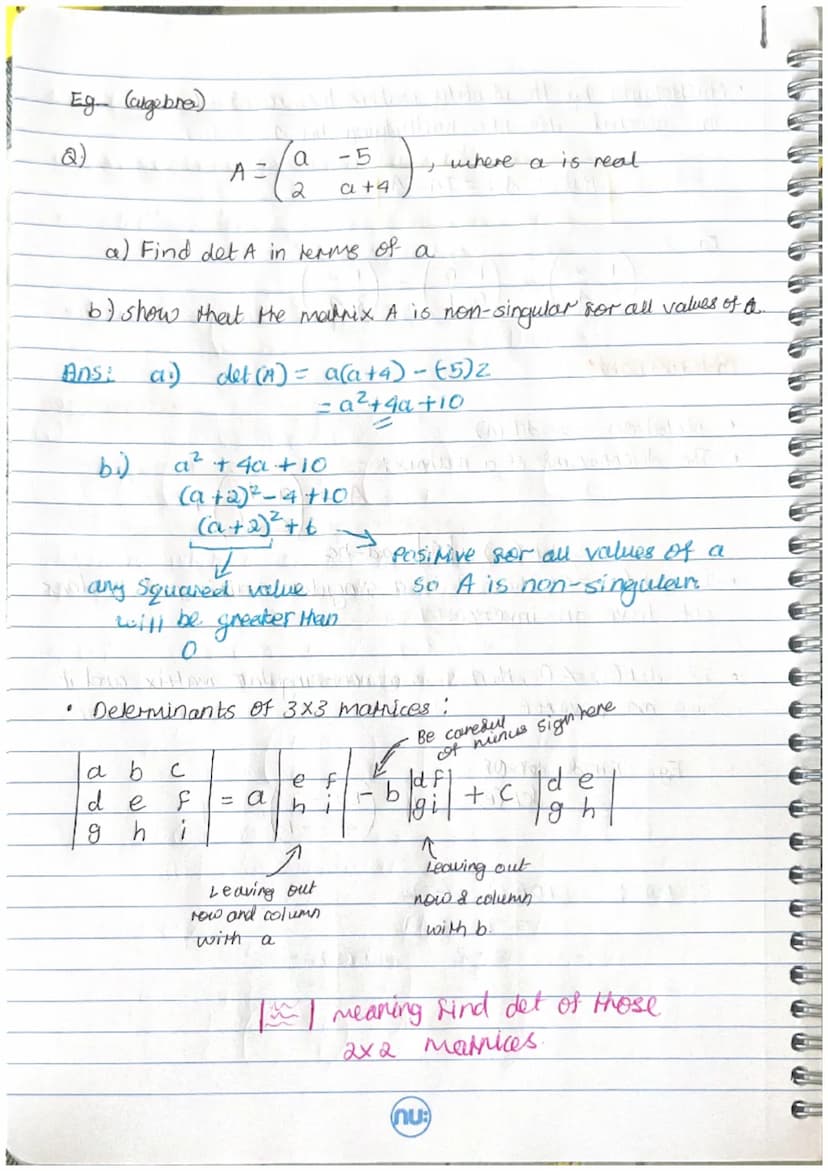 Eg - (algebra)
Q) A = ( a -5 ) , where a is real
( 2 a+4 )
a) Find det A in terms of a
b) show that the matrix A is non-singular for all values of a.
Ans: a.) det (A) = a(a+4) - (-5)2
= a² + 4a + 10
b.) a² + 4a + 10
(a+2)² - 4 + 10
(a+2)² + 6
positive for all values of a
so A is non-singular.
any squared value
will be greater than
0
• Determinants of 3x3 matrices :
Be careful
of minus sign here
| a b c |
| d e f | = a | e f | - b | d f | + c | d e |
| g h i | | h i | | g i | | g h |
Leaving out
row and column
with a
Leaving out
row & column
with b.
| | meaning find det of those
2x2 matrices.
nu: